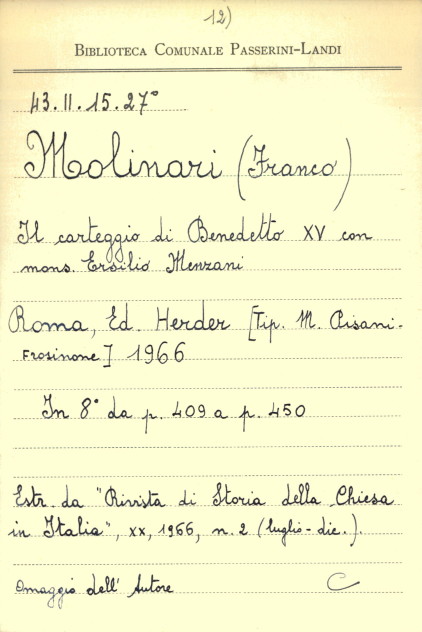 12)
BIBLIOTECA COMUNALE PASSERINI-LANDI
43.II.15.27°
Molinari (Franco)
Il carteggio di Benedetto XV con
mons. Ersilio Menzani
Roma, Ed. Herder [Tip. M. Pisani-
Frosinone] 1966
In 8° da p. 409 a p. 450
Estr. da "Rivista di Storia della Chiesa
in Italia", XX, 1966, n. 2 (luglio-dic.).
Omaggio dell'Autore C